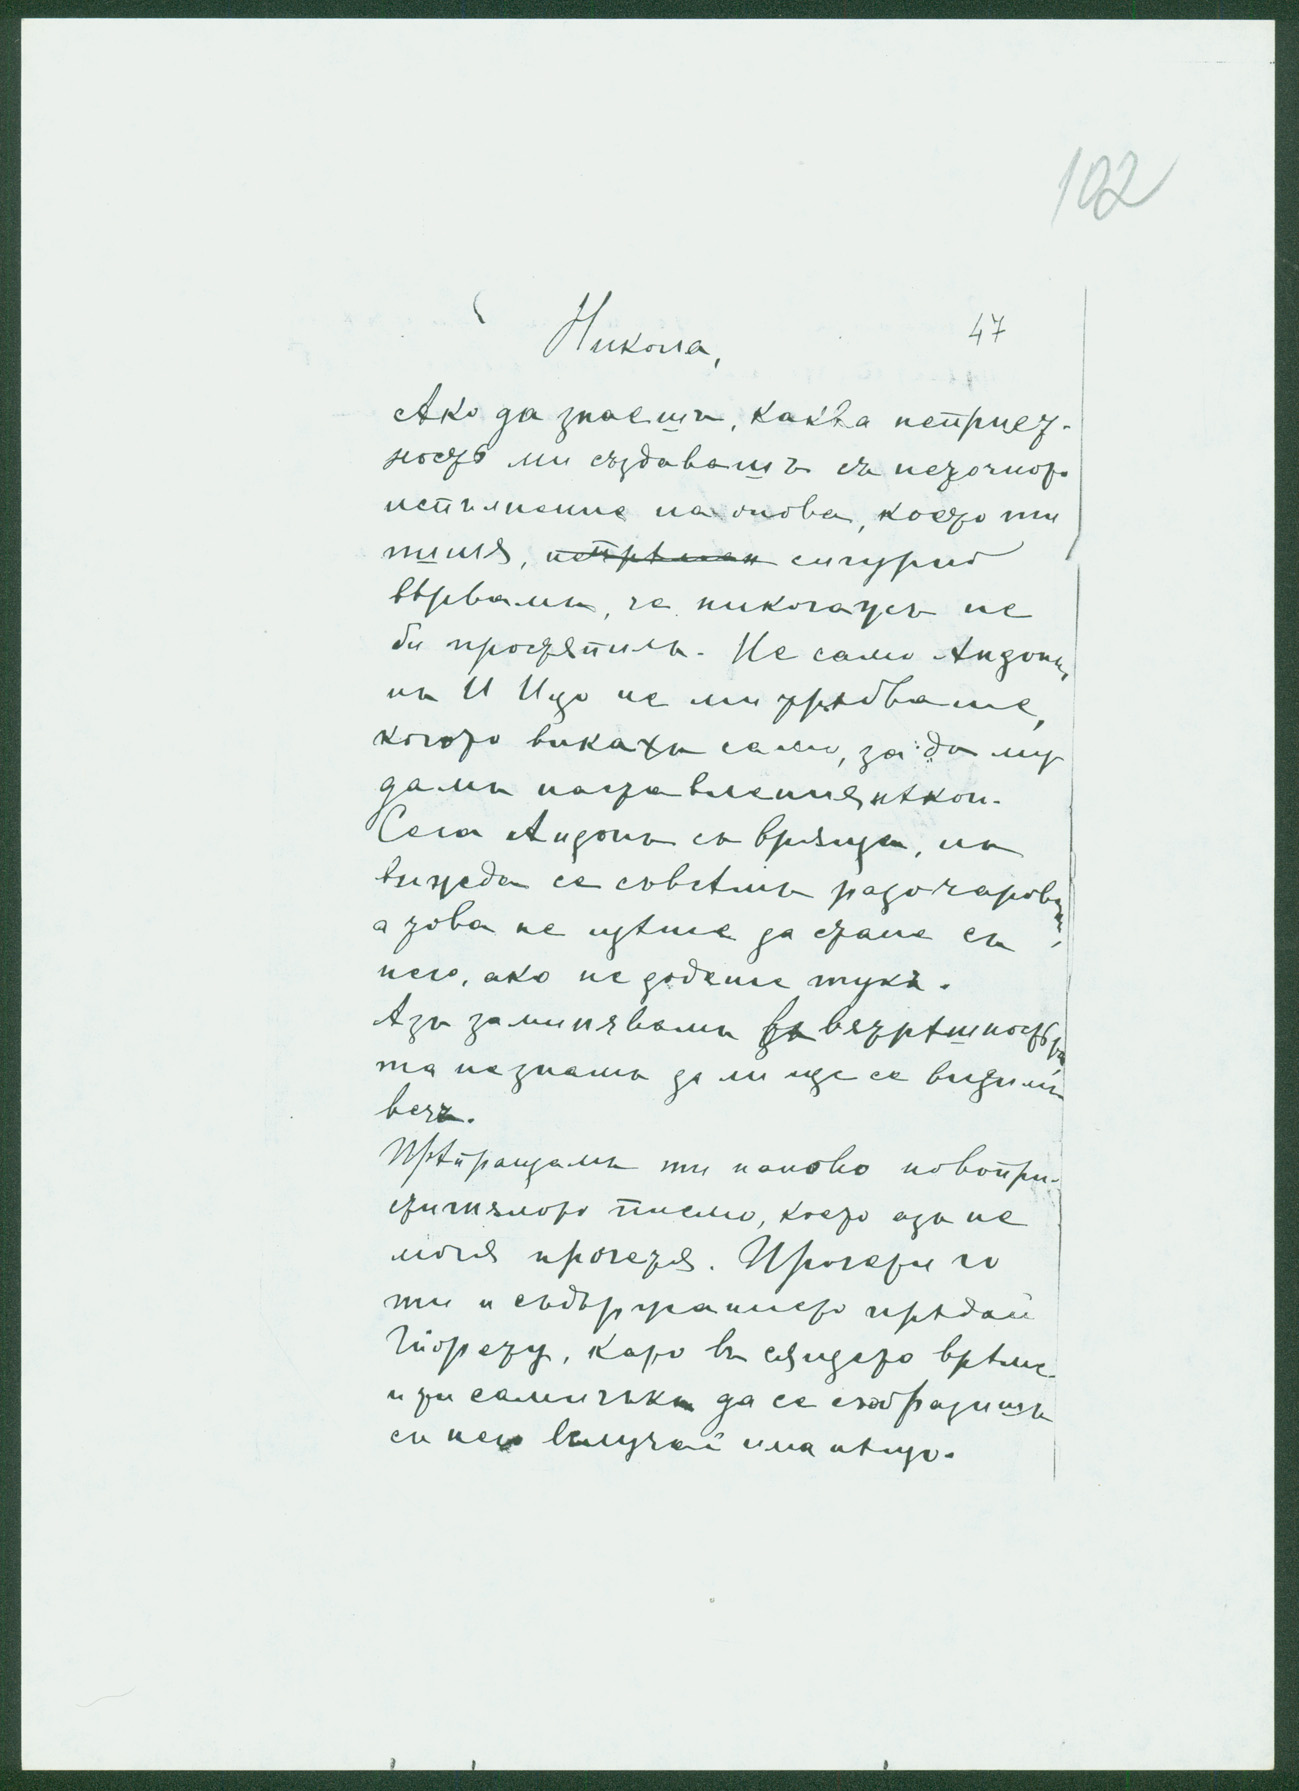 102
47
Никола,
Ако да знаешъ, каква неприят-
ность ми създавашъ съ неточното
испълнение на онова, което ти
пиша, сигурно
вѣрвамъ, че никогажъ не
би простѫпилъ. Не само Андонъ,
нъ И Ицо не ми трѣбваше,
когото викахъ само, за да му
дамъ наставления нѣкои.
Сега Андонъ съ връща, нъ
вижда се съвсѣмъ разочарованъ,
а това не щѣше да стане съ
него, ако не додеше тука.
Азъ заминявамъ въ вѫтрѣшностьта
та незнамъ да ли ще се видимъ
вечъ.
Прѣпращамъ ти наново новопри-
стигнѫлото писмо, което азъ не
могѫ прочетѫ. Прочети го
ти и съдържанието прѣдай
Гьорету, като въ сѫщето врѣме
и ти самичъкъ да се съобразишъ
съ него вслучай има нѣщо.